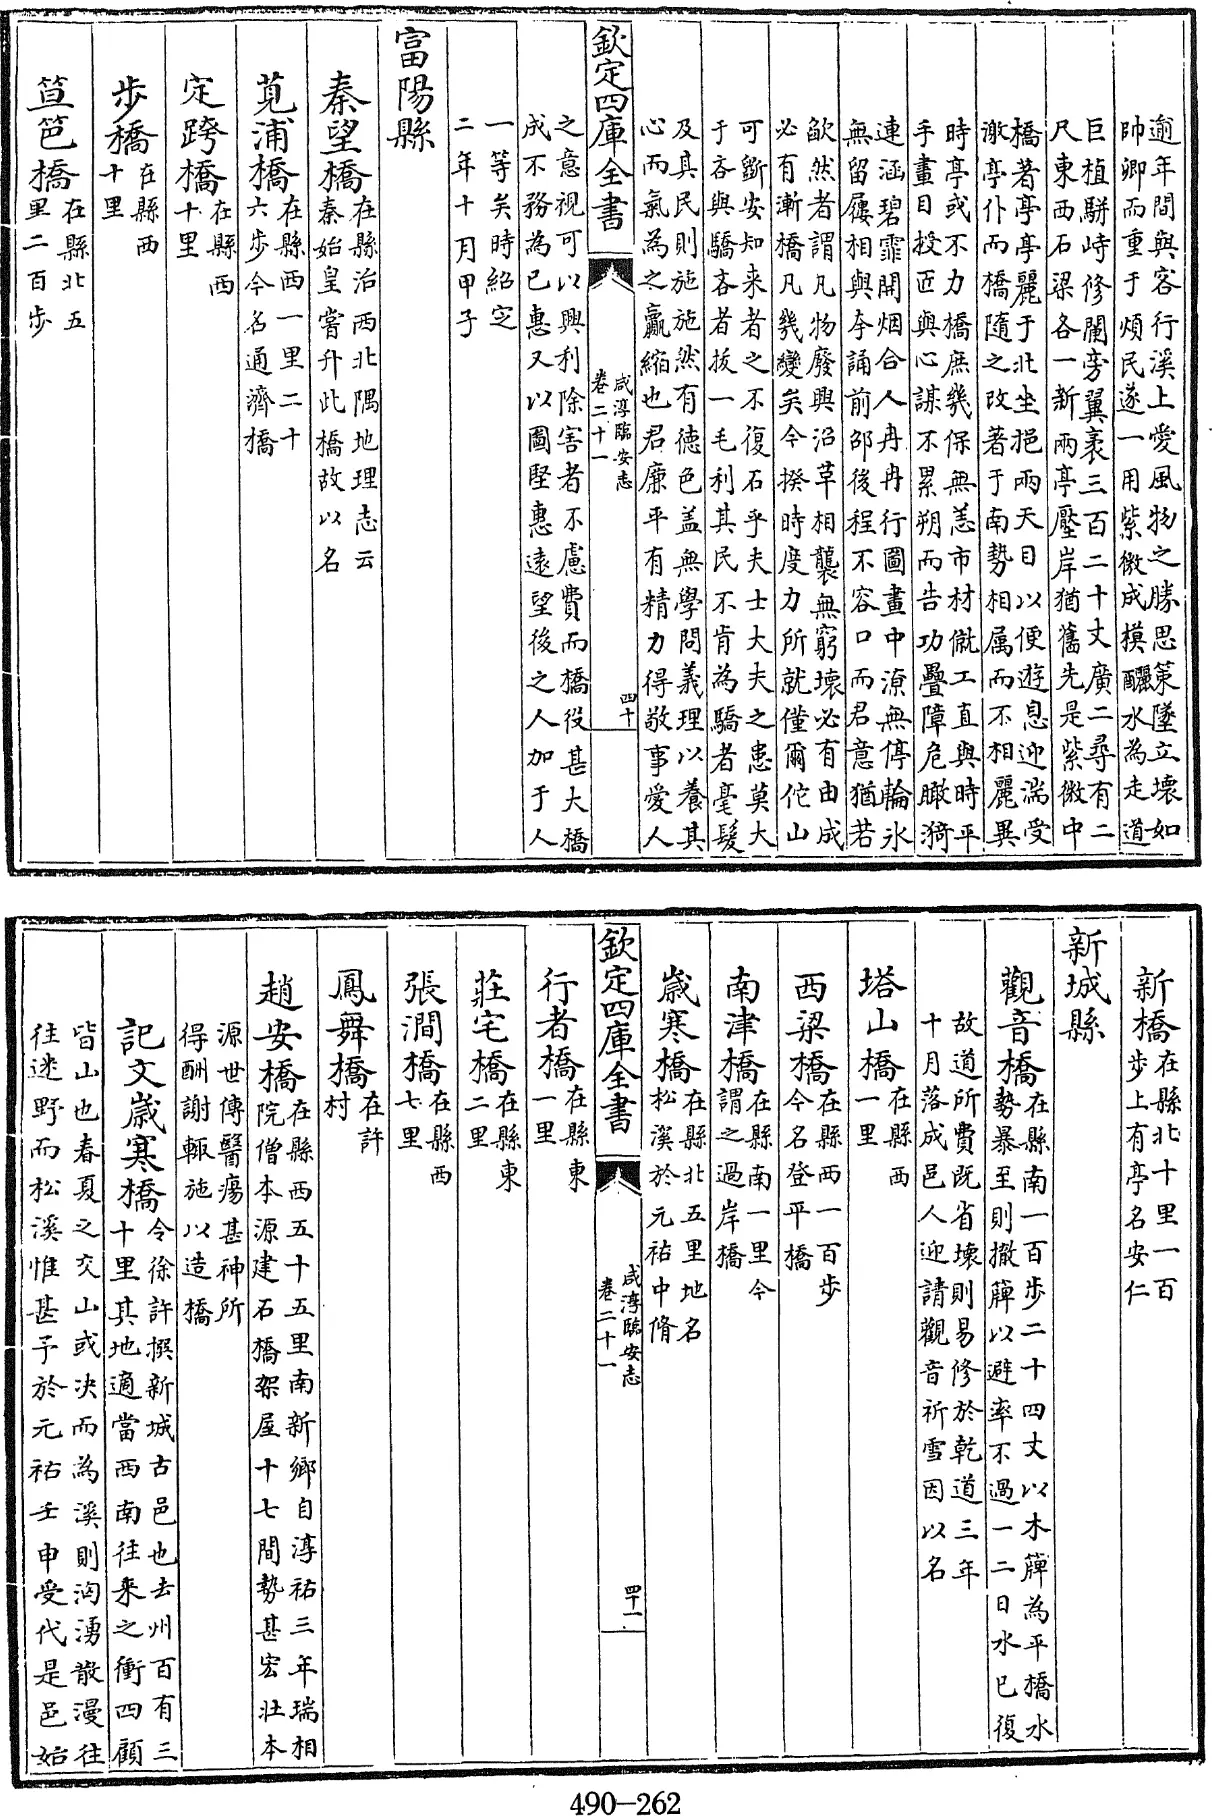 逾年間與客行溪上愛風物之勝思策墜立壞如
帥卿而重于煩民遂一用紫微成模釃水為走道
巨植駢峙修闌旁翼袤三百二十丈廣二尋有二
尺東西石梁各一新兩亭壓岸猶舊先是紫微中
橋著亭亭麗于北坐挹兩天目以便遊息迎湍受
潡亭仆而橋隨之改著于南勢相属而不相麗異
時亭或不力橋庶幾保無恙市材僦工直與時平
手畫目授匠與心謀不累朔而告功疊障危瞰漪
連涵碧霏開烟合人冉冉行圖畫中源無停輪氷
無留屨相與夸誦前邵後程不容口而君意猶若
歉然者謂凡物廢興沿革相襲無窮壞必有由成
必有漸橋凡幾變矣今揆時度力所就僅爾佗山
可斷安知来者之不復石乎夫士大夫之患莫大
于吝與驕吝者拔一毛利其民不肯為驕者毫髮
及其民則施施然有徳色盖無學問義理以養其
心而氣為之贏縮也君廉平有精力得敬事愛人
欽定四庫全書
咸淳臨安志
卷二十一
四十
之意視可以興利除害者不慮費而橋役甚大橋
成不務為已惠又以圖堅惠遠望後之人加于人
一等矣時紹定
二年十月甲子
富陽縣
秦望橋在縣治西北隅地理志云
秦始皇嘗升此橋故以名
莧浦橋在縣西一里二十
六步今名通濟橋
定跨橋在縣西
十里
步橋在縣西
十里
笪笆橋在縣北五
里二百步
新橋在縣北十里一百
步上有亭名安仁
新城縣
觀音橋在縣南一百步二十四丈以木𥱼為平橋水
勢暴至則撤𥱼以避率不過一二日水已復
故道所費既省壞則易修於乾道三年
十月落成邑人迎請觀音祈雪因以名
塔山橋在縣西
一里
西梁橋在縣西一百步
今名登平橋
南津橋在縣南一里今
謂之過岸橋
嵗寒橋在縣北五里地名
松溪於元祐中脩
欽定四庫全書
咸淳臨安志
卷二十一
四十一
行者橋在縣東
一里
莊宅橋在縣東
二里
張澗橋在縣西
七里
鳳舞橋在許
村
趙安橋在縣西五十五里南新鄉自淳祐三年瑞相
院僧本源建石橋架屋十七間勢甚宏壯本
源世傳醫瘍甚神所
得酬謝輙施以造橋
記文嵗寒橋令徐許撰新城古邑也去州百有三
十里其地適當西南往来之衝四顧
皆山也春夏之交山或决而為溪則洶湧散漫往
往迷野而松溪惟甚予於元祐壬申受代是邑始
490—262